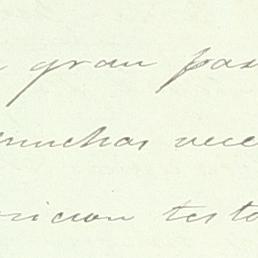 gran pas
muchas vece
icion testo